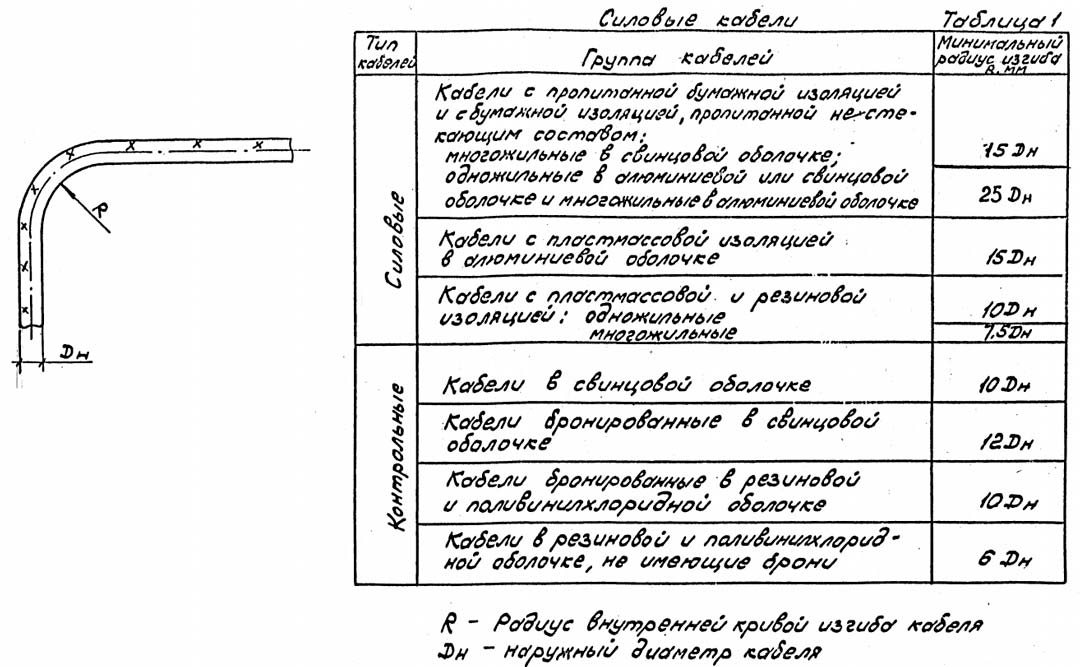 Силовые кабели
Таблица 1
Тип
кабелей
Группа кабелей
Минимальный
радиус изгиба
R, мм
Силовые
Кабели с пропитанной бумажной изоляцией
и с бумажной изоляцией, пропитанной не-сте-
кающим составом:
многожильные в свинцовой оболочке;
15 Dн
одножильные в алюминиевой или свинцовой
оболочке и многожильные в алюминиевой оболочке
25 Dн
Кабели с пластмассовой изоляцией
в алюминиевой оболочке
15Dн
Кабели с пластмассовой и резиновой
изоляцией: одножильные
10Dн
многожильные
7.5Dн
Контрольные
Кабели в свинцовой оболочке
10 Dн
Кабели бронированные в свинцовой
оболочке
12Dн
Кабели бронированные в резиновой
и поливинилхлоридной оболочке
10 Dн
Кабели в резиновой и поливинилхлорид-
ной оболочке, не имеющие брони
6 Dн
R
Dн
R - Радиус внутренней кривой изгиба кабеля
Dн - наружный диаметр кабеля